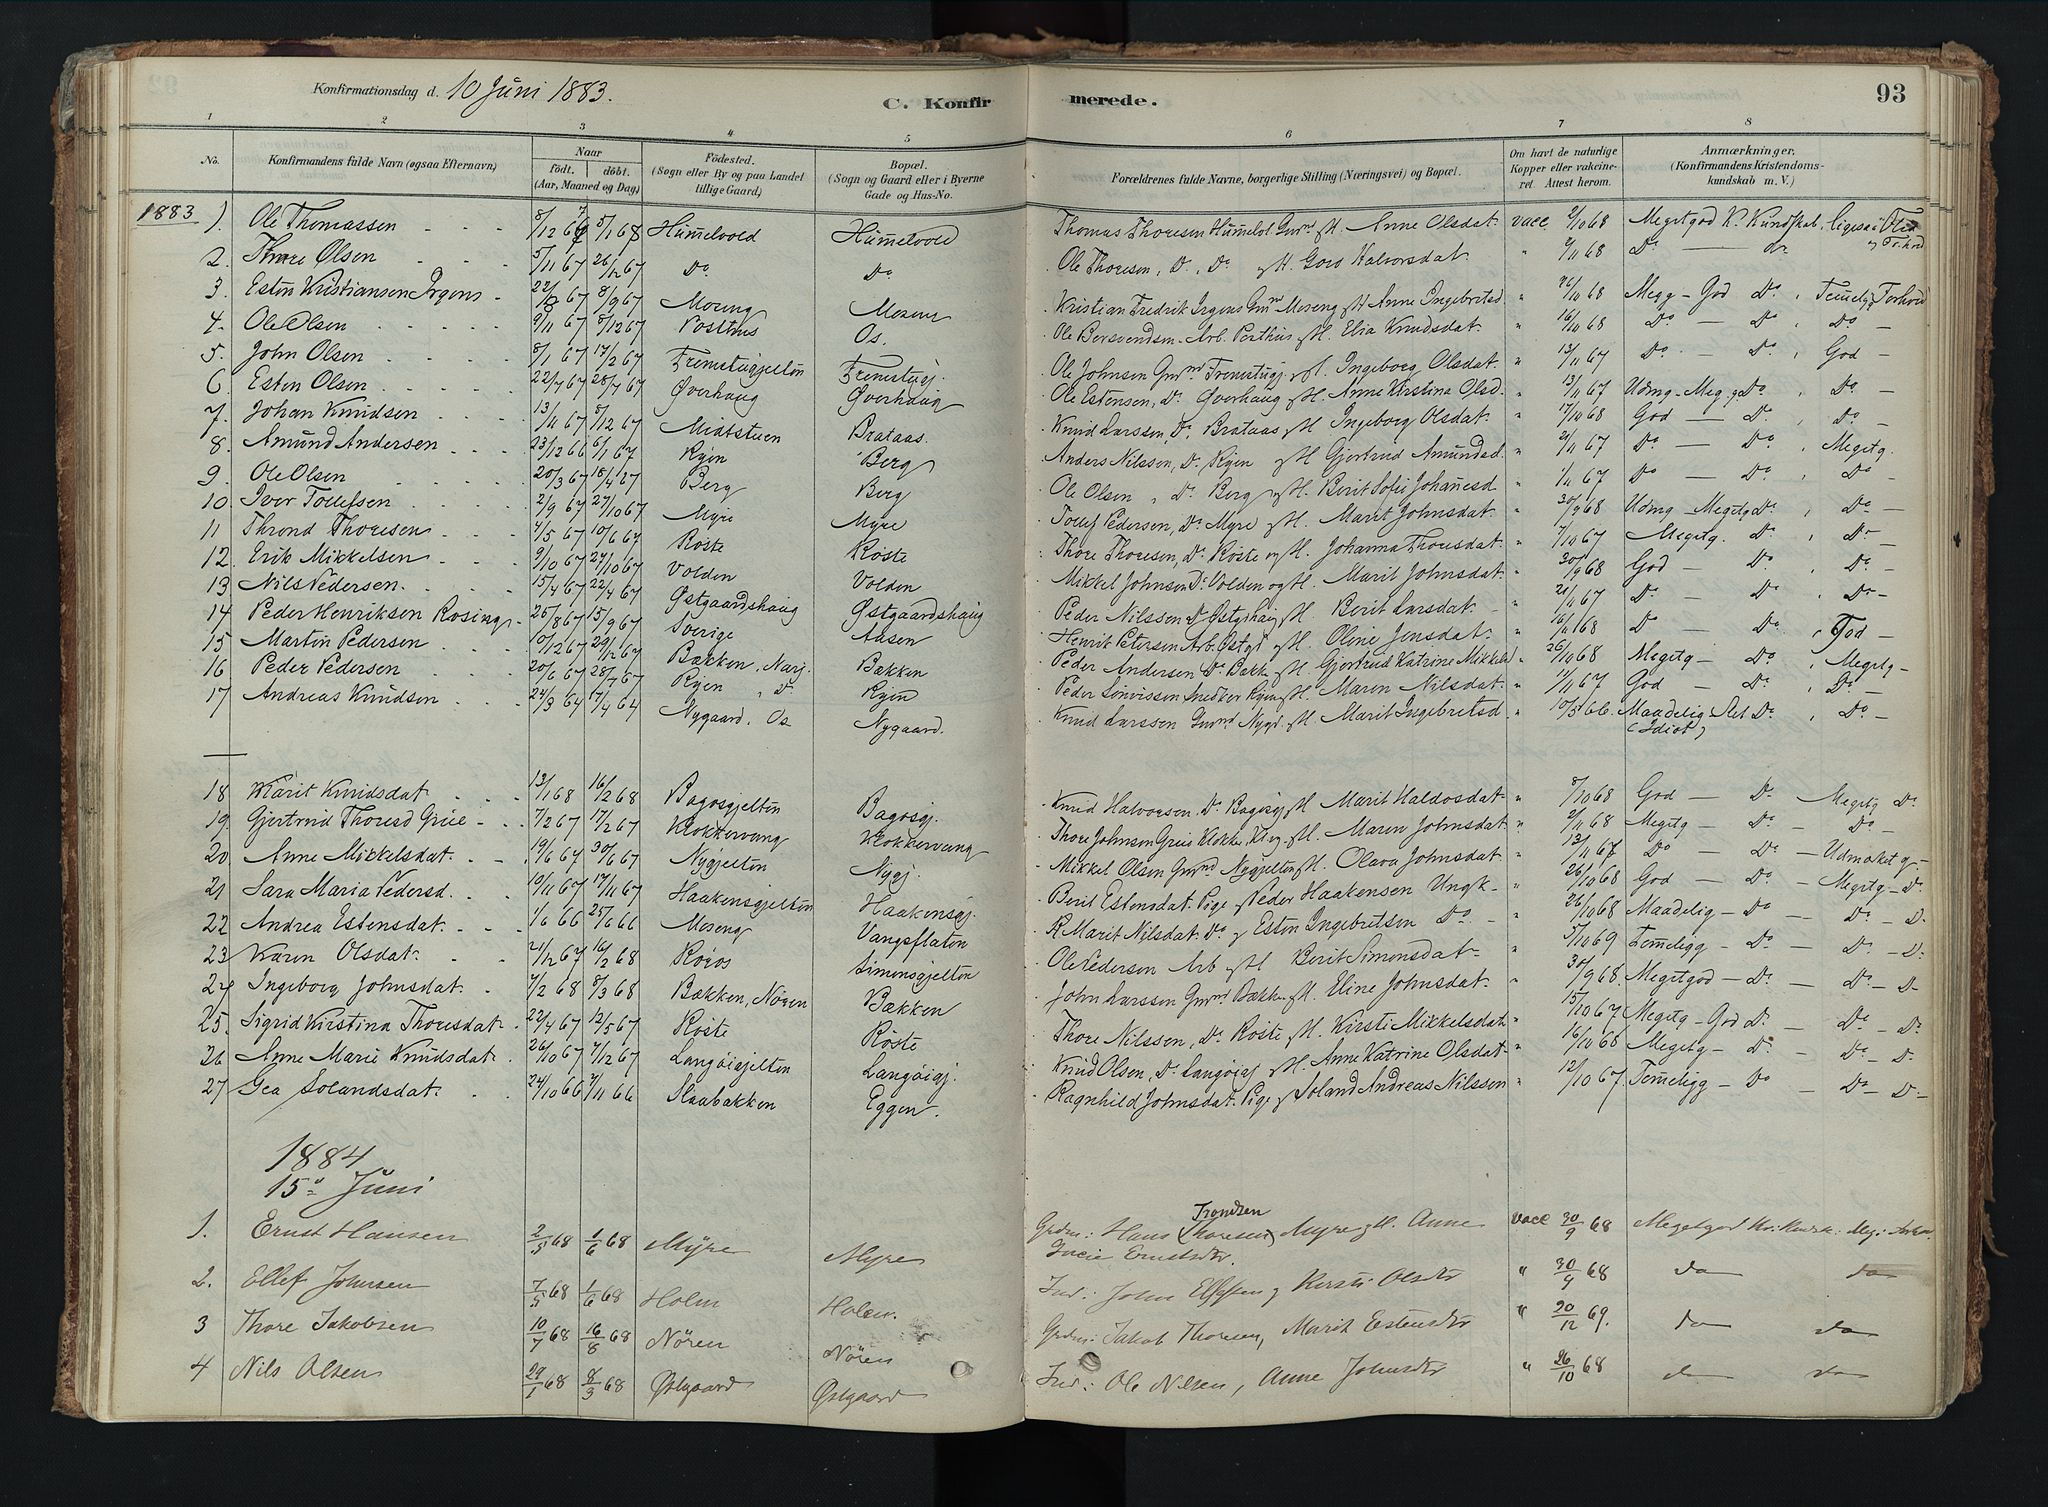 Konfirmationsdag d. 10 Juni 1883. C. Konfir merede. 93
1 2 3 4 5 6 7 8
No. Konfirmandens fulde Navn (ogsaa Efternavn) Naar födt. döbt. (Aar, Maaned og Dag) Födested. (Sogn eller By og paa Landet tillige Gaard) Bopæl. (Sogn og Gaard eller i Byerne Gade og Hus-No. Forældrenes fulde Navne, borgerlige Stilling (Næringsvei) og Bopæl. Om havt de naturlige Kopper eller vakcineret. Attest herom. Anmærkninger, (Konfirmandens Kristendomskundskab m. V.)
1883 1. Ole Thomassen 5/1 68 Hummelvold Hummelvold Thomas Thoresen Hummelvol Gmd og H. Anne Olsdat. vacc 9/10 68 Megetgod K. Kundskab, ligesaa Flid og Forhold
2. Thore Olsen 5/11 67 26/12 67 Do Do Ole Thoresen, Do, Do og H. Goro Halvorsdat " 9/11 68 Do — do
3. Esten Kristiansen Irgens 8/9 67 Moseng Moseng Kristian Fredrik Irgens Gmd Moseng og H Anne Ingebritsd " 26/10 68 Megg - God Do, Temelig Forhold
4. Ole Olsen 9/11 67 8/12 67 Posthus Os. Ole Bersvendsen Arb. Posthus og H. Elia Knudsdat " 16/10 68 Do — Do, Do -
5. John Olsen 8/1 67 17/2 67 Fremstugjelten Fremstugj. Ole Johnsen Gmd Fremstugj. og H. Ingeborg Olsdat. " 13/11 67 Do — Do, God -
6. Esten Olsen 22/7 67 28/7 67 Øverhaug Øverhaug Ole Estensen, Do Øverhaug og H. Anne Kirstina Olsd. " 13/11 67 Udmg - Megg Do, Do -
7. Johan Knudsen 13/11 67 8/12 67 Midtstuen Brataas. Knud Larssen, Do, Brataas og H Ingeborg Olsdat. " 17/10 68 God — Do, Do -
8. Amund Andersen 23/12 66 6/1 67 Ryen Berg Anders Nilssen, Do Ryen og H Gjertrud Amundsd. " 21/11 67 Do — Do, Megetg.
9. Ole Olsen 20/3 67 18/4 67 Berg Berg Ole Olsen, Do Berg og H. Berit Sofie Johannesd " 1/11 67 Do — Do, Do
10. Iver Tollefsen 2/9 67 27/10 67 Myre Myre Tollef Pedersen, Do Myre og H. Marit Johnsdat. " 30/9 68 Udmg - Megetg Do, Do -
11 Thrond Thoresen 4/5 67 10/6 67 Röste Röste Thore Thoresen, Do Röste og H. Johanna Thoresdat. " 7/10 67 Megetg. Do, Do -
12. Erik Mikkelsen 9/10 67 27/10 67 Volden Volden Mikkel Johnsen Do Volden og H. Marit Johnsdat. " 30/9 68 God — Do, Do -
13 Nils Pedersen. 15/4 67 22/4 67 Østgaardshaug Østgaardshaug Peder Nilssen Do Østgshaug og H. Berit Larsdat. " 21/11 67 Do — Do, Do -
14 Peder Henriksen Rosing 25/8 67 15/9 67 Sverige Aasen Henrik Petersen Arb. Østgd og H. Oline Jensdat. " 16/11 68 Do — Do, God -
15 Martin Pedersen 10/12 67 29/12 67 Bækken, Narj. Bækken Peder Andersen Do Bækk og H. Gjertrud Katrine Mikkelsd " 26/10 68 Megetg - Do, Megetg -
16 Peder Pedersen 20/6 67 28/7 67 Ryen, Do Ryen Peder Snedker Ryen og H. Maren Nilsdat. " 1/11 67 God — Do, Do -
17 Andreas Knudsen 24/3 64 17/4 64 Nygaard. Os Nygaard. Knud Larssen Gmd Nygd. og H. Marit Ingebretsd " 10/5 66. Maadelig Do, Do -
(Idiot)
18 Marit Knudsdat. 13/1 68 16/2 68 Bagosgjelten Bagosgj. Knud Halvorsen. Do Bagosgj og H Marit Haldosdat. " 8/10 68 God — Do Megetg Do
19. Gjertrud Thoresd Grüe 7/2 67 17/2 67 Klokkervang Klokkervang Thore Johnsen Grüe Klokker Klvg og H. Maren Johnsdat. " 2/11 68 Megetg - Do - Do -
20 Anne Mikkelsdat. 19/6 67 30/6 67 Nygjelten Nygj. Mikkel Olsen Gmd Nygjelten og H. Olava Johnsdat " 13/11 67 Do — Do - Udmærket g -
21 Sara Maria Pedersd. 10/11 67 17/11 67 Haakensgjelten Haakensgj. Berit Estensdat. Pige og Peder Haakensen Ungk - " 26/10 68 God — Do - Megetg - Do
22 Andrea Estensdat. 1/6 66 25/6 66 Moseng Vangsflaten Marit Nilsdat. Do og Esten Ingebretsen Do " 26/10 68 Maadelig - Do - Do - D.
23 Karen Olsdat. 21/12 67 16/2 68 Röros Simensgjelten Ole Pedersen Arb og H Berit Simensdat. " 5/10 69 Temeligg - Do - Do - D.
24 Ingeborg Johnsdat. 7/2 68 8/3 68 Bækken, Nören Bækken John Larssen Gmd Bækken og H. Eline Johnsdat. " 30/9 68. Megetgod - Do - Do - D
25. Sigrid Kirstina Thoresdat 22/4 67 12/5 67 Röste Röste Thore Nilssen, Do Röste og H. Kirsti Mikkelsdat. " 15/10 67 Megetg - God D. - Do - D.
26 Anne Marie Knudsdat. 26/10 67 7/12 67 Langöigjelten Langöigj. Knud Olsen, Do Langöigj og H. Anne Katrine Olsdat. " 16/10 68 Megetg - D. - Do - D.
27 Gea Solandsdat. 24/10 66 2/11 66 Slaabakken Eggen. Ragnhild Johnsdat. Pige og Soland Andreas Nilssen " 12/10 67 Temeligg - Do - Do - D -
1884
15de Juni
Trondsen
1. Ernst Hansen 2/5 68 1/6 68 Myre Myre Grdm: Hans (Thoresen) Myre og H. Anne vacc 30/9 68 Megetgod Kr. Kundsk: Meg:
Lucie Ernstsdtr.
2. Ellef Johnsen 7/5 68 1/6 68 Holm Holm. Ind: John Ellefsen og Kirsti Olsdtr " 30/9 68 do do
3 Thore Jakobsen 10/7 68 16/8 68 Nören Nören Grdm: Jakob Thoresen, Marit Estensdtr " 20/12 69. do do
4 Nils Olsen 29/1 68 8/3 68 Østgaard Østgaard Ind: Ole Nilsen, Anne Johnsdtr " 26/10 68 do do